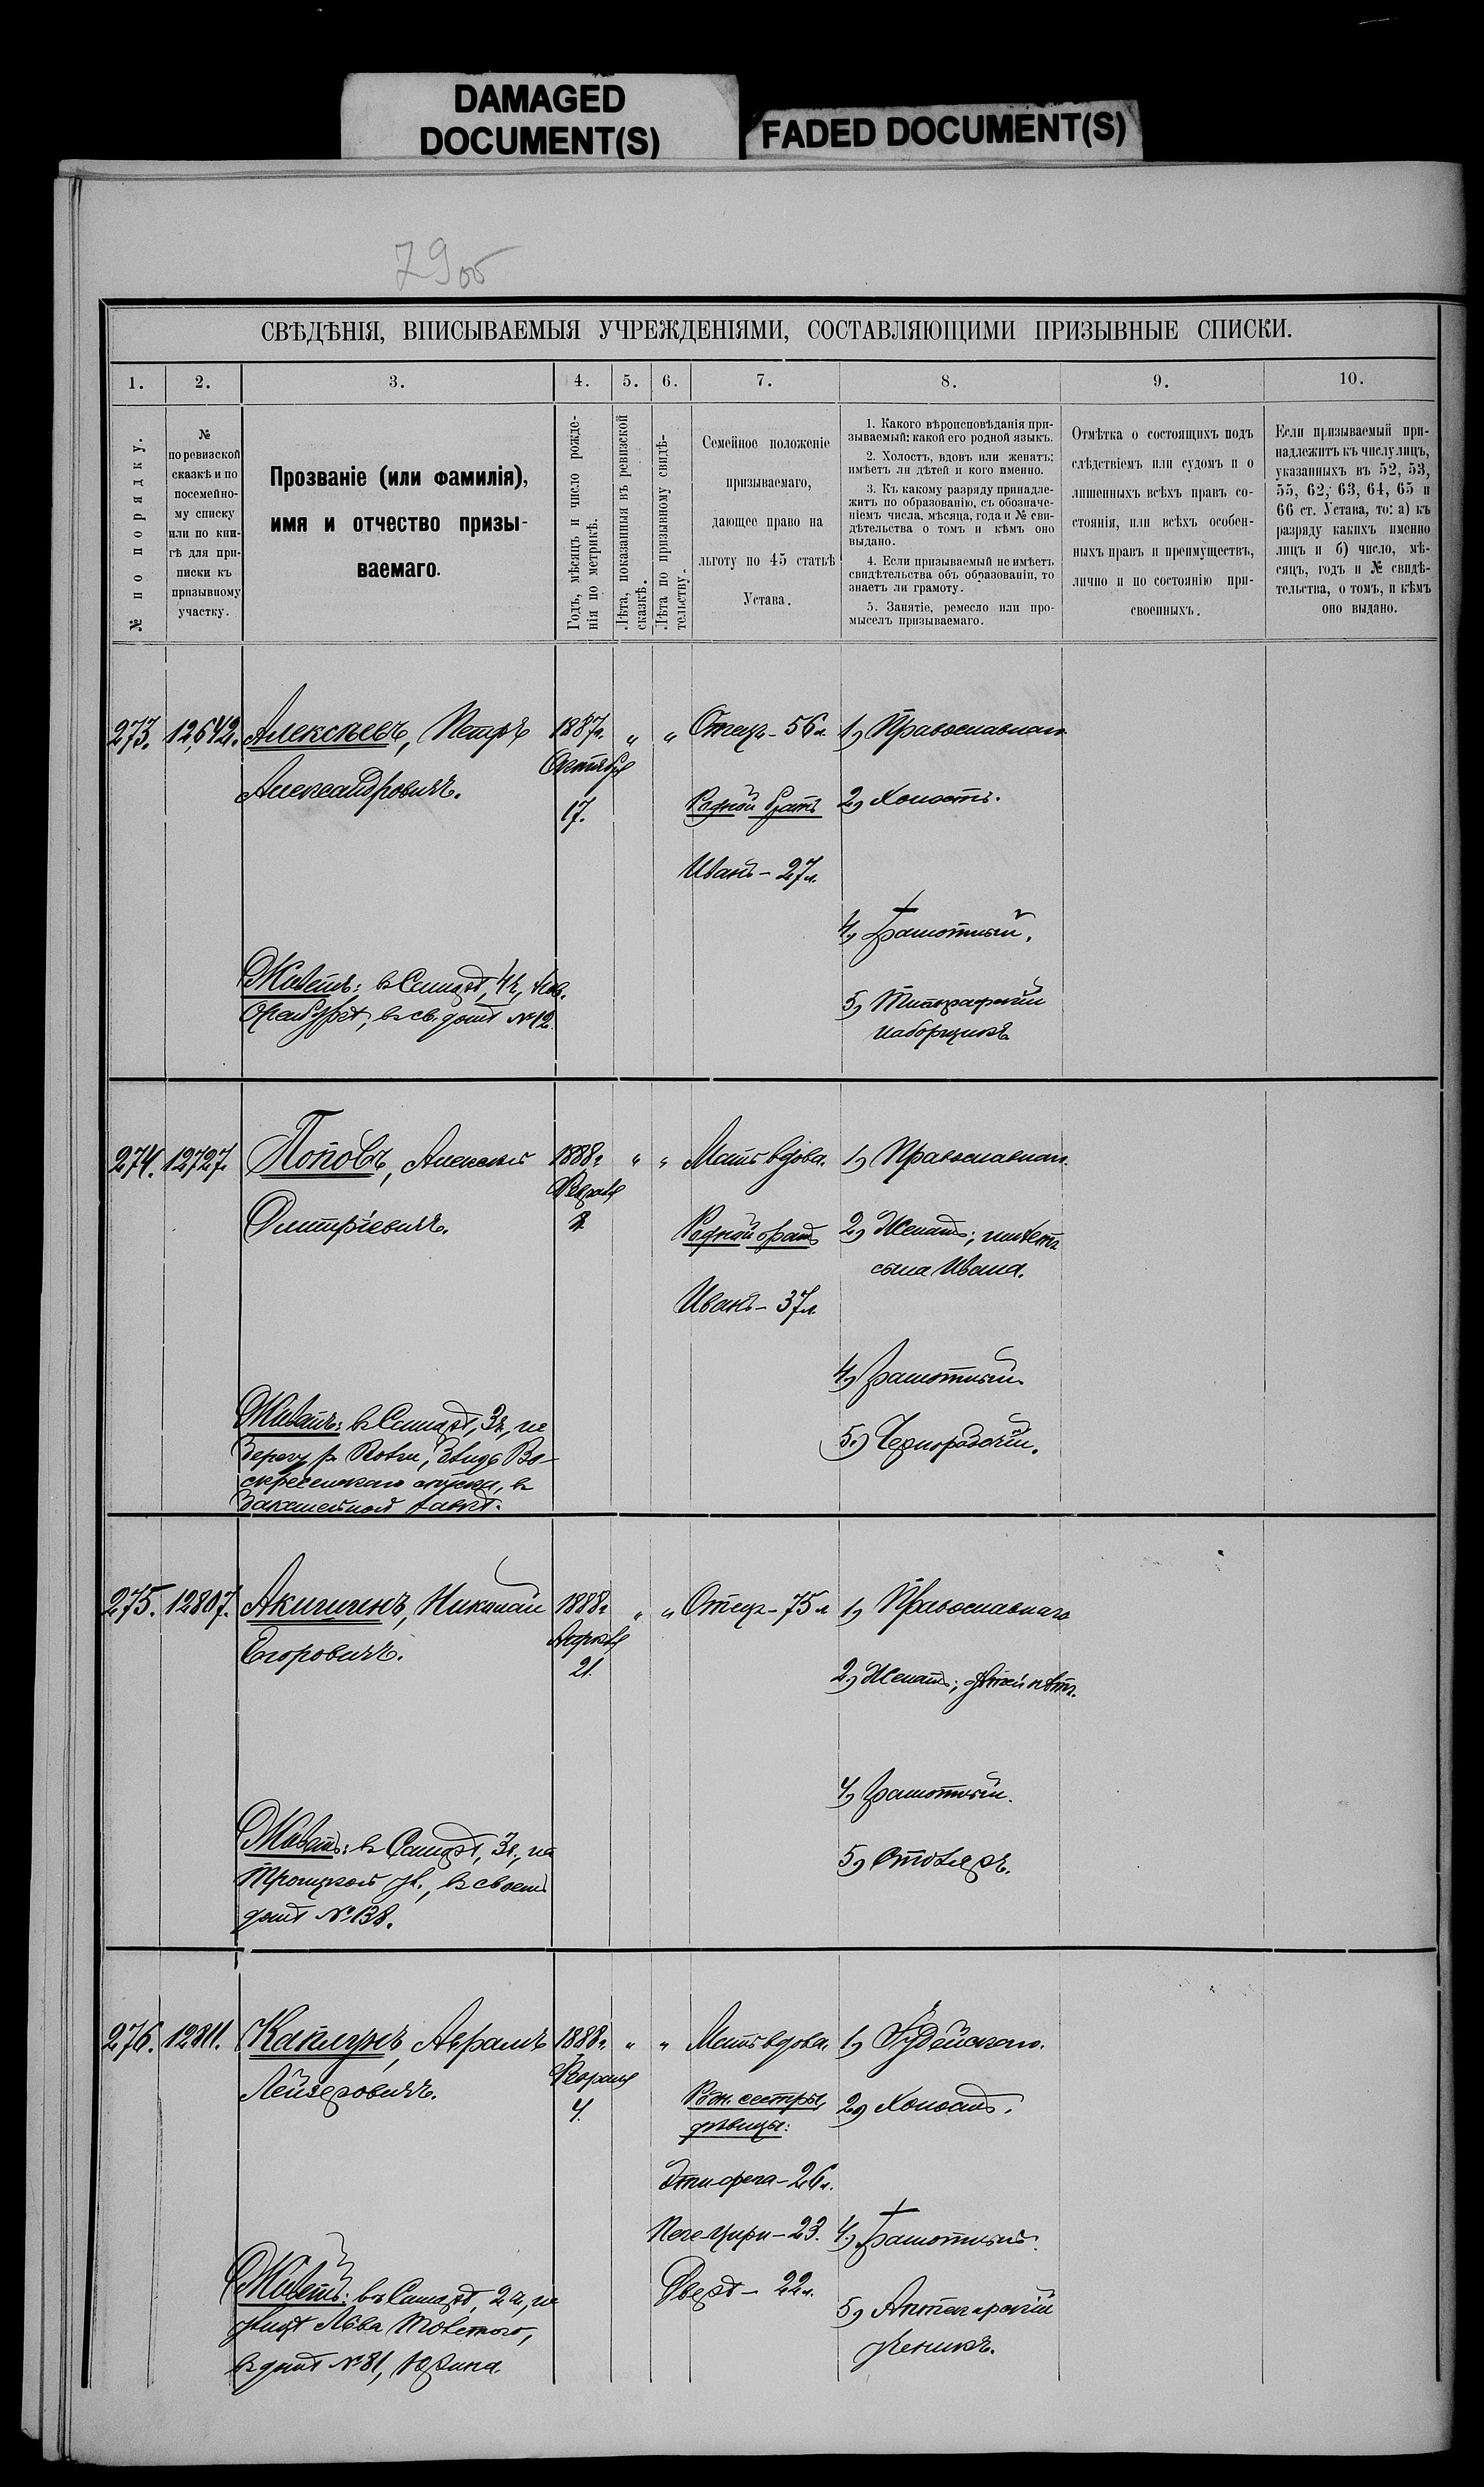 DAMAGED
DOCUMENT(S)
FADED DOCUMENT(S)
79об
СВѢДѢНІЯ, ВПИСЫВАЕМЫЯ УЧРЕЖДЕНІЯМИ, СОСТАВЛЯЮЩИМИ ПРИЗЫВНЫЕ СПИСКИ.
1. 2. 3. 4. 5. 6. 7. 8. 9. 10.
№ по порядку.
№
по ревизской
сказкѣ и по
посемейно-
му списку
или по кни-
гѣ для при-
писки къ
призывному
участку.
Прозваніе (или фамилія),
имя и отчество призы-
ваемаго.
Годъ, мѣсяцъ и число рожде-
нія по метрикѣ.
Лѣта, показанныя въ ревизской
сказкѣ.
Лѣта по призывному свидѣ-
тельству.
Семейное положеніе
призываемаго,
дающее право на
льготу по 45 статьѣ
Устава.
1. Какого вѣроисповѣданія при-
зываемый: какой его родной языкъ.
2. Холостъ, вдовъ или женатъ;
имѣетъ ли дѣтей и кого именно.
3. Къ какому разряду принадле-
житъ по образованію, съ обозначе-
ніемъ числа, мѣсяца, года и № сви-
дѣтельства о томъ и кѣмъ оно
выдано.
4. Если призываемый не имѣетъ
свидѣтельства объ образованіи, то
знаетъ ли грамоту.
5. Занятіе, ремесло или про-
мыселъ призываемаго.
Отмѣтка о состоящихъ подъ
слѣдствіемъ или судомъ и о
лишенныхъ всѣхъ правъ со-
стоянія, или всѣхъ особен-
ныхъ правъ и преимуществъ,
лично и по состоянію при-
своенныхъ.
Если призываемый при-
надлежитъ къ числу лицъ,
указанныхъ въ 52, 53,
55, 62, 63, 64, 65 и
66 ст. Устава, то: а) къ
разряду какихъ именно
лицъ и б) число, мѣ-
сяцъ, годъ и № свидѣ-
тельства, о томъ, и кѣмъ
оно выдано.
273. 12,642. Алексѣевъ, Петръ
Александровичъ.
1887г.
Октября
17.
" "
Отецъ - 56л.
Родной братъ
Иванъ - 27л.
1) Православнаго
2) Холостъ.
4) Грамотный.
5) Типографскій
наборщикъ
Живетъ: въ Самарѣ, 4ч,
Оренбургѣ, въ св. домѣ №12.
274. 12727. Поповъ, Алексѣй
Дмитріевичъ.
1888г
Февраля
" "
Мать вдова.
Родной братъ
Иванъ - 37л
1) Православнаго.
2) Женатъ; имѣетъ
сына Ивана.
4) Грамотный.
5.) Чернорабочій.
Живетъ: въ Самарѣ, 3ч, на
берегу р. Волги, близъ Во-
скресенскаго спуска, въ
бакалейной лавкѣ.
275. 12807. Акишинъ, Николай
Егоровичъ.
1888г
Апрѣля
21.
" "
Отецъ - 75л
1) Православнаго
2.) Женатъ; дѣтей нѣтъ.
4) Грамотный.
5) Столяръ.
Живетъ: въ Самарѣ, 3ч., на
Троицкой ул., въ своемъ
домѣ №138.
276. 12811. Каплунъ, Абрамъ
Лейзеровичъ.
1888г.
Февраля
4.
" "
Мать вдова.
Родн. сестры,
дѣвицы:
26л.
23.
22л.
1) Іудейскаго.
2) Холостъ.
4.) Грамотный.
5) Аптекарскій
ученикъ.
Живетъ: въ Самарѣ, 2ч, на
улицѣ Льва Толстого,
въ домѣ №81, Юрина